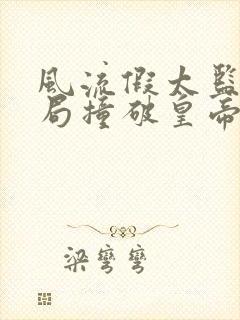 風流假太監
局撞破皇帝
梁彎彎